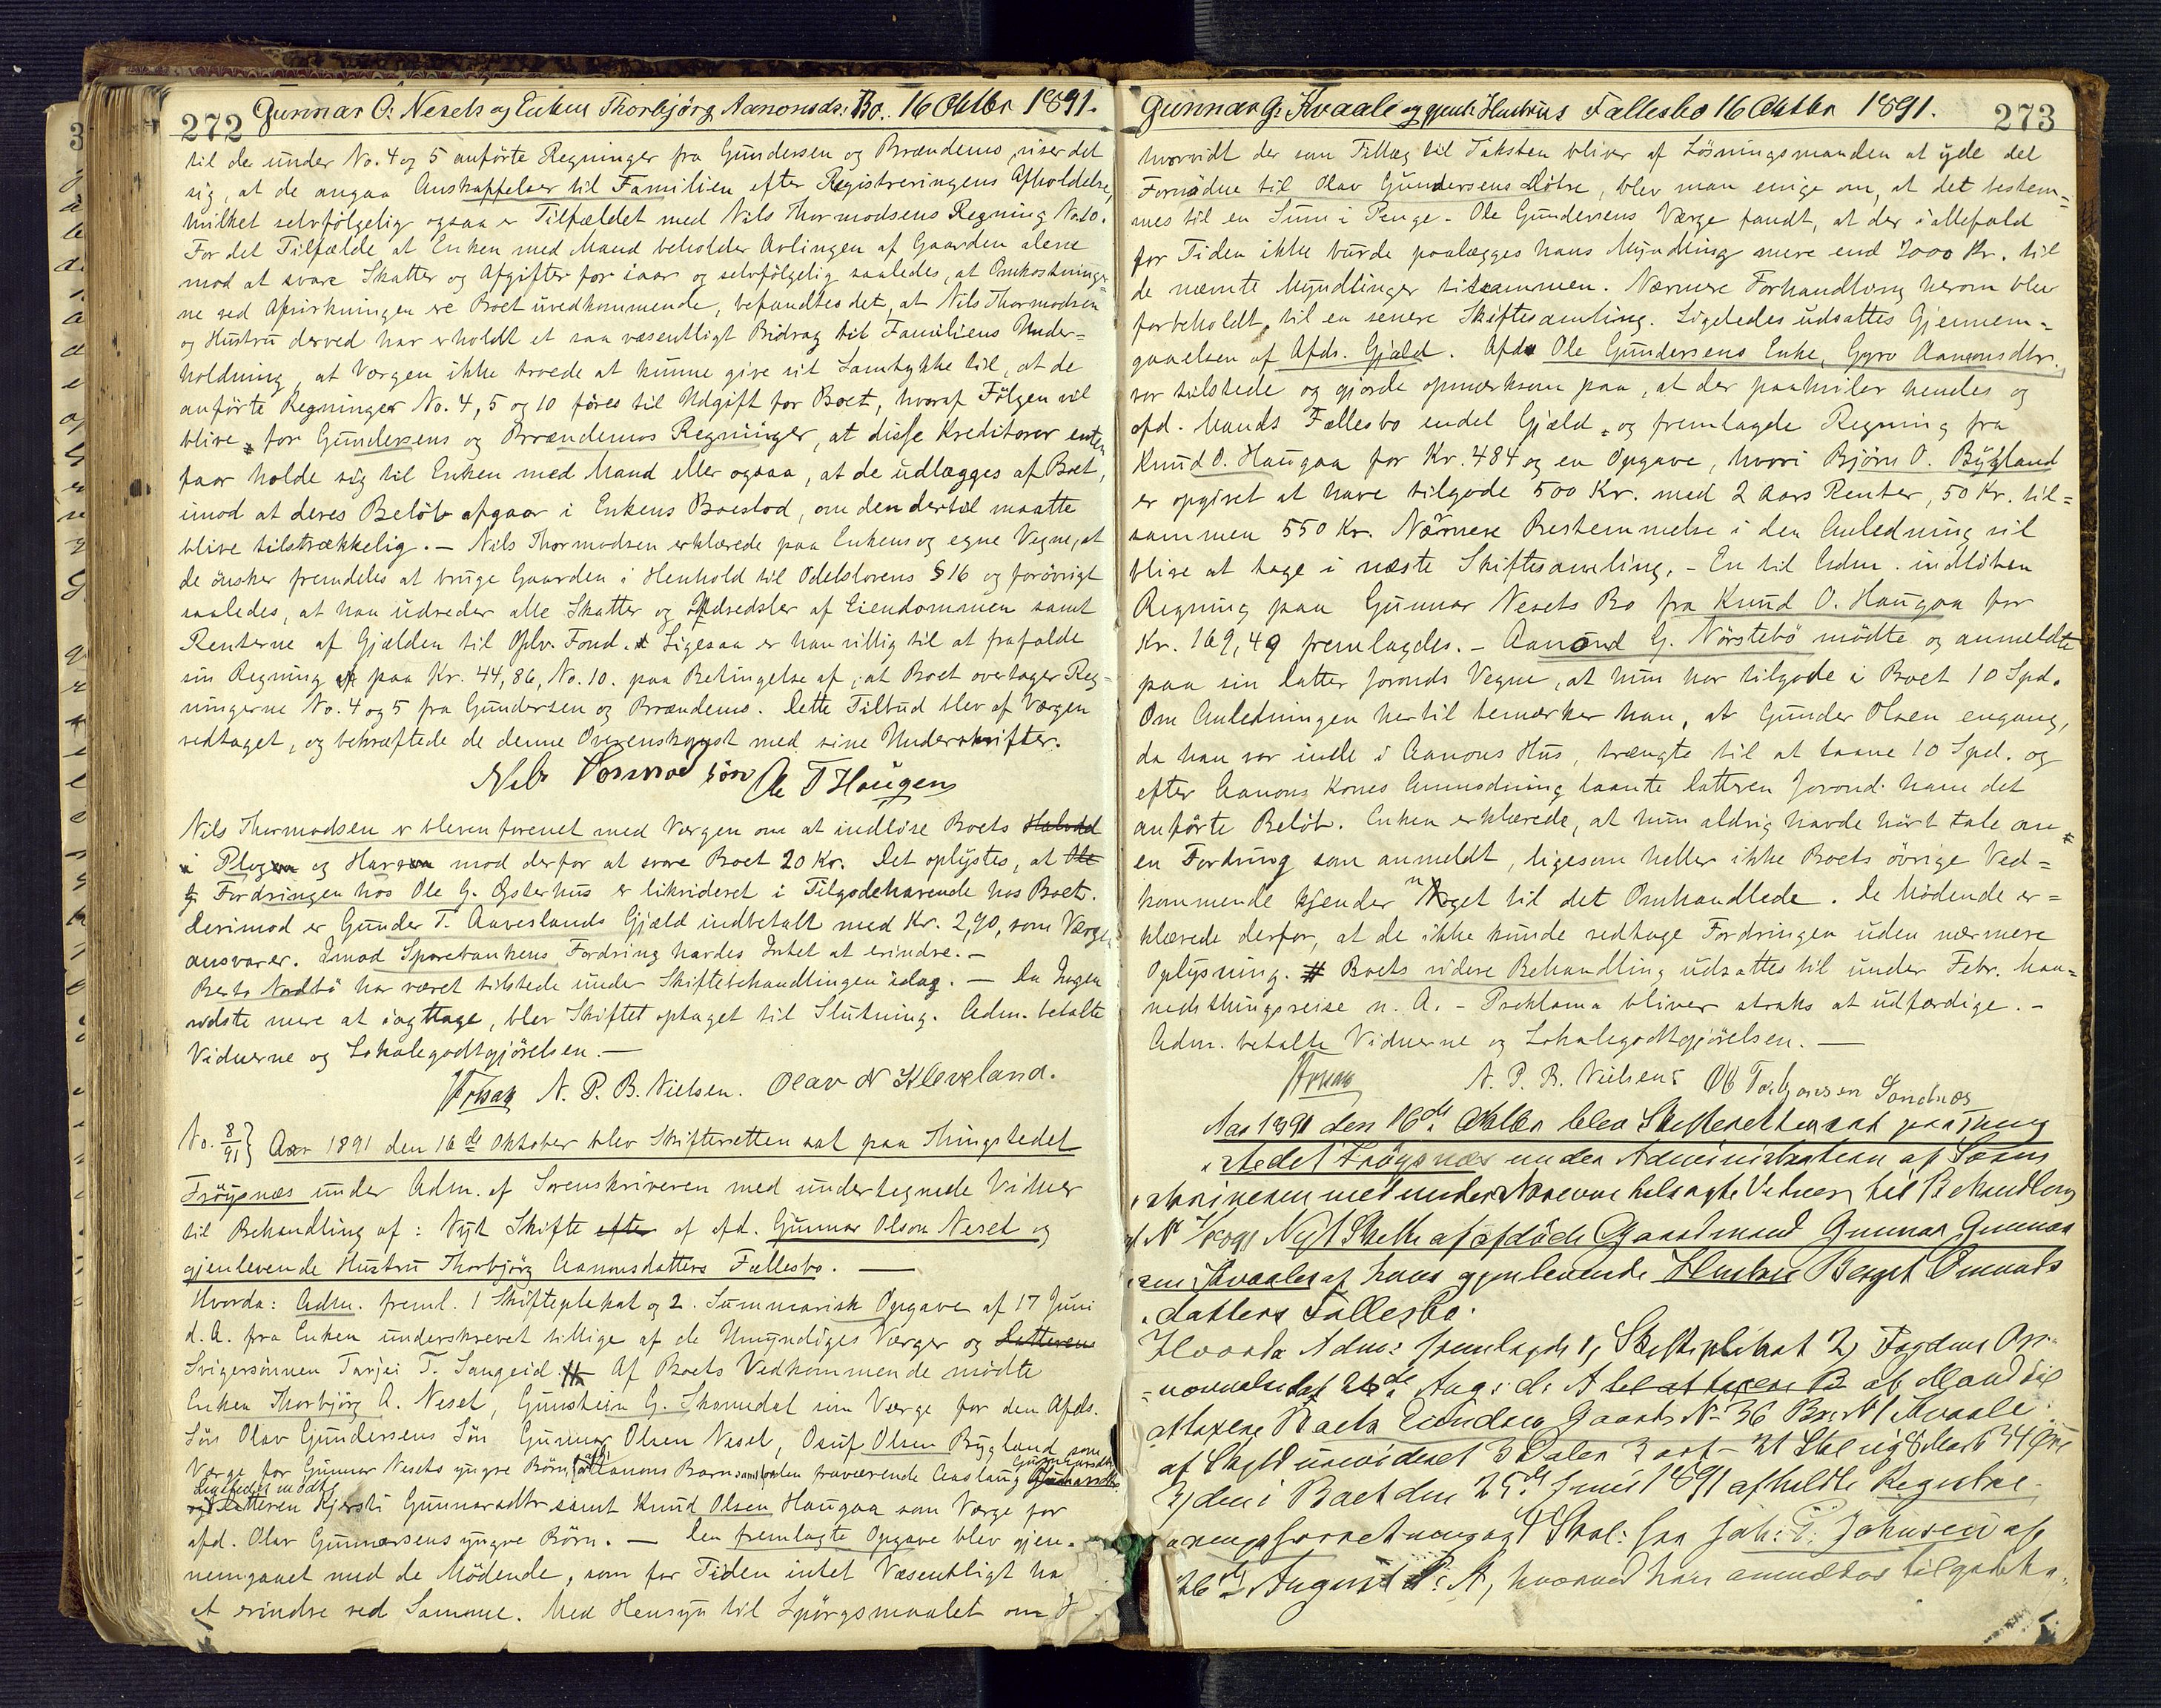 272 Gunnar O. Nesets og Enken Thorbjörg Aanonsds: Bo. 16 Oktbr 1891.
til de under No. 4 og 5 anförte Regninger fra Gundersen og Brændemo, viser det
sig, at de angaa Anskaffelser til Familien efter Registreringens Afholdelse,
hvilket selvfölgelig ogsaa er Tilfældet med Nils Thormodsens Regning No. 10.
For det Tilfælde at Enken med Mand beholder Avlingen af Gaarden alene
mod at svare Skatter og Afgifter for iaar og selvfölgelig saaledes, at Omkostninger=
ne ved Afvirkningen ere Boet uvedkommende, befandtes det, at Nils Thormodsen
og Hustru derved har erholdt et saa væsentligt Bidrag til Familiens Under=
holdning, at Værgen ikke troede at kunne give sit Samtykke til, at de
anförte Regninger No. 4, 5 og 10 föres til Udgift for Boet, hvoraf Fölgen vil
blive, for Gundersens og Brændemos Regninger, at disse Kreditorer enten
faar holde sig til Enken med Mand eller ogsaa, at de udlægges af Boet,
imod at deres Belöb afgaar i Enkens Boeslod, om den dertil maatte
blive tilstrækkelig. — Nils Thormodsen erklærede paa Enkens og egne Vegne, at
de önsker fremdeles at bruge Gaarden i Henhold til Odelslovens § 16 og forövrigt
saaledes, at han udreder alle Skatter og Udredsler af Eiendommen samt
Renterne af Gjælden til Oplv. Fond. Ligesaa er han villig til at frafalde
sin Regning paa Kr. 44,86, No. 10. paa Betingelse af, at Boet overtager Reg=
ningerne No. 4 og 5 fra Gundersen og Brændemo. Dette Tilbud blev af Værgen
vedtaget, og bekræftede de denne Overenskomst med sine Underskrifter.
Nils Tormod sön Ole T Haugen
Nils Thormodsen er bleven forenet med Værgen om at indlöse Boets Halvdel
i Plogen og Harven mod derfor at svare Boet 20 Kr. Det oplystes, at Ole
G. Fordringen hos Ole G. Østerhus er likvideret i Tilgodehavende hos Boet.
Derimod er Gunder T. Aaveslands Gjæld indbetalt med Kr. 2,90, som Værgen
ansvarer. Imod Sparebankens Fordring havdes Intet at erindre. —
Berte Nordbö har været tilstede under Skiftebehandlingen idag. — Da Ingen
vidste mere at iagttage, blev Skiftet optaget til Slutning. Adm. betalte
Vidnerne og Lokalegodtgjörelsen. —
N. P. B. Nielsen. Olav N Kleveland.
No. 8/91} Aar 1891 den 16de Oktober blev Skifteretten sat paa Thingstedet
Fröysnes under Adm. af Sorenskriveren med undertegnede Vidner
til Behandling af: Nyt Skifte efter af afd. Gunnar Olson Neset og
gjenlevende Hustru Thorbjörg Aanonsdatters Fællesbo. —
Hvorda: Adm. freml. 1 Skifteplakat og 2. Summarisk Opgave af 17 Juni
d. A. fra Enken underskrevet tillige af de Umyndiges Værger og Datterens
Svigersönnen Tarjei T. Langeid. Af Boets Vedkommende mödte
Enken Thorbjörg A. Neset, Gunstein G. Skomedal som Værge for den Afds.
Sön Olav Gundersens Sön Gunnar Olsen Neset, Osuf Olsen Bygland som
Værge for Gunnar Nesets yngre Börn, for Aanons Barn samt for den fraværende Aaslaug Gunnarsdtr.
Ligeledes mödte
og Datteren Kjersti Gunnarsdtr samt Knud Olsen Haugaa som Værge for
afd. Olav Gunnarsens yngre Börn. — Den fremlagte Opgave blev gjen=
nemgaaet med de Mödende, som for Tiden intet Væsentligt ha
at erindre ved Samme. Med Hensyn til Spörgsmaalet om

Gunnar G. Kvaale og gjenl. Hustrus Fallesbo 16 Oktbr 1891. 273
hvorvidt der som Tillæg til Taksten bliver af Lösningsmanden at yde det
Fornödne til Olav Gundersens Döttre, blev man enige om, at det bestem=
mes til en Sum i Penge. Ole Gundersens Værge fandt, at der iallefald
for Tiden ikke burde paalægges hans Myndling mere end 2000 Kr. til
de nævnte Myndlinger tilsammen. Nærmere Forhandling herom blev
forbeholdt til en senere Skiftesamling. Ligeledes udsattes Gjennem=
gaaelsen af Afds. Gjæld. Afd. Ole Gundersens Enke, Gyro Aanonsdtr.,
var tilstede og gjorde opmærksom paa, at der paahviler hendes og
afd. Mands Fællesbo endel Gjæld, og fremlagde Regning fra
Knud O. Haugaa for Kr. 484 og en Opgave, hvori Björn O. Bygland
er opgivet at have tilgode 500 Kr. med 2 Aars Renter, 50 Kr. til=
sammen 550 Kr. Nærmere Bestemmelse i den Anledning vil
blive at tage i næste Skiftesamling. — En til Adm. indlöben
Regning paa Gunnar Nesets Bo fra Knud O. Haugaa for
Kr. 169,49 fremlagdes. — Aanond G. Nörstebö mödte og anmeldte
paa sin Datter Joronds Vegne, at hun har tilgode i Boet 10 Spd.
Om Anledningen hertil bemærker han, at Gunder Olsen engang,
da han var inde i Aanons Hus, trængte til at laane 10 Spd. og
efter Aanons Kones Anmodning laante Datteren Jorond ham det
anförte Belöb. Enken erklærede, at hun aldrig havde hört tale om
en Fordring som anmeldt, ligesom heller ikke Boets övrige Ved=
kommende kjender noget til det Omhandlede. De Mödende er=
klærede derfor, at de ikke kunde vedtage Fordringen uden nærmere
Oplysning. Boets videre Behandling udsattes til under Febr. Maa=
nedsthingsreise n. A. — Proklama bliver straks at udfærdige. —
Adm. betalte Vidnerne og Lokalegodtgjörelsen. —
N. P. B. Nielsen Ol Torbjörnsen Sandnæs
Aar 1891 den 16de Oktbr blev Skifteretten sat paa Thing
stedet Fröysnæs under Administration af Soren
skriveren med undertegnede Vidner til Behandling
af Nyt Skifte af afdöde Gaardmand Gunnar Gunnar
sen Kvaale og hans gjenlevende Hustru Berget Omunds
datters Fallesbo.
Hvorda Adm: fremlagde 1, Skifteplakat 2, Fogdens Op=
nævnelse af 26de Aug: d: A til at taxere B af Mænd til
at taxere Boets Eiendom Gaards No 36 Br. No 1 Kvaale
af Skyld urevideret 3 Daler 3 ort 21 Skl rev 8 Mark 34 Öre
3, den i Boet den 25de Juni 1891 afholdte Registre
ringsforretning og 4 Skr: fra Joh: P. Johnsen af
26de August d: A, hvorved han anmelder tilgodeha